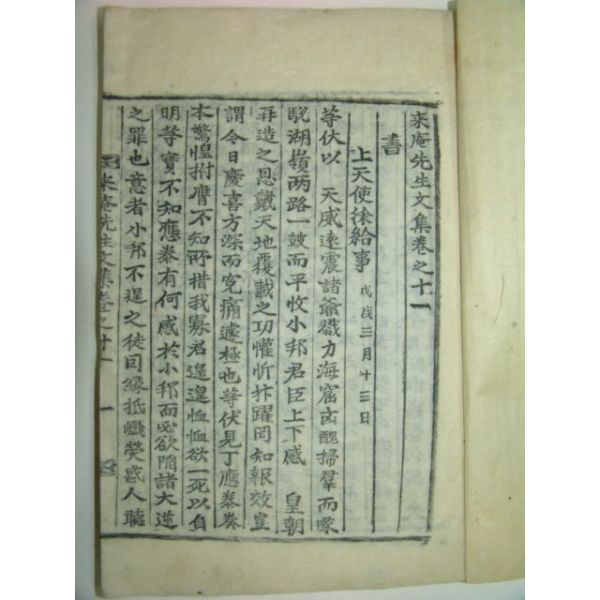 來庵先生文集卷之十一
書
上天使徐給事 戊戌三月十三日
等伏以 天威遠震諸爺戮力海窟凶醜掃羣而蒙
駾湖嶺兩路一鼓而平收小邦君臣上下感 皇朝
再造之恩戴天地覆載之功懽忻抃躍罔知報效豈
謂今日慶喜方深而寃痛遽極也等伏見丁應泰奏
本驚惶拊膺不知所措我寡君遑遑恤恤欲一死以自
明等實不知應泰有何感於小邦而必欲陷諸大逆
之罪也意者小邦不逞之徒因緣抵巇熒惑人聽
來庵先生文集卷之十一 一